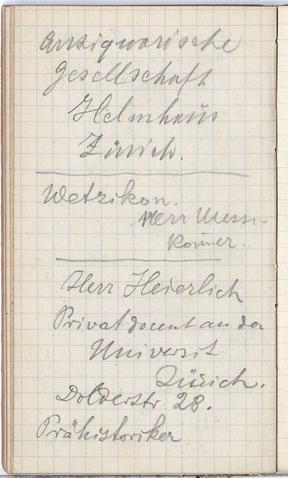 Antiquarische
Gesellschaft
Helmhaus
Zürich.
Wetzikon.
Herr Messi-
komer.
Herr Heierlich
Privatdocent an der
Universit
Zürich.
Dolderstr. 28.
Prähistoriker